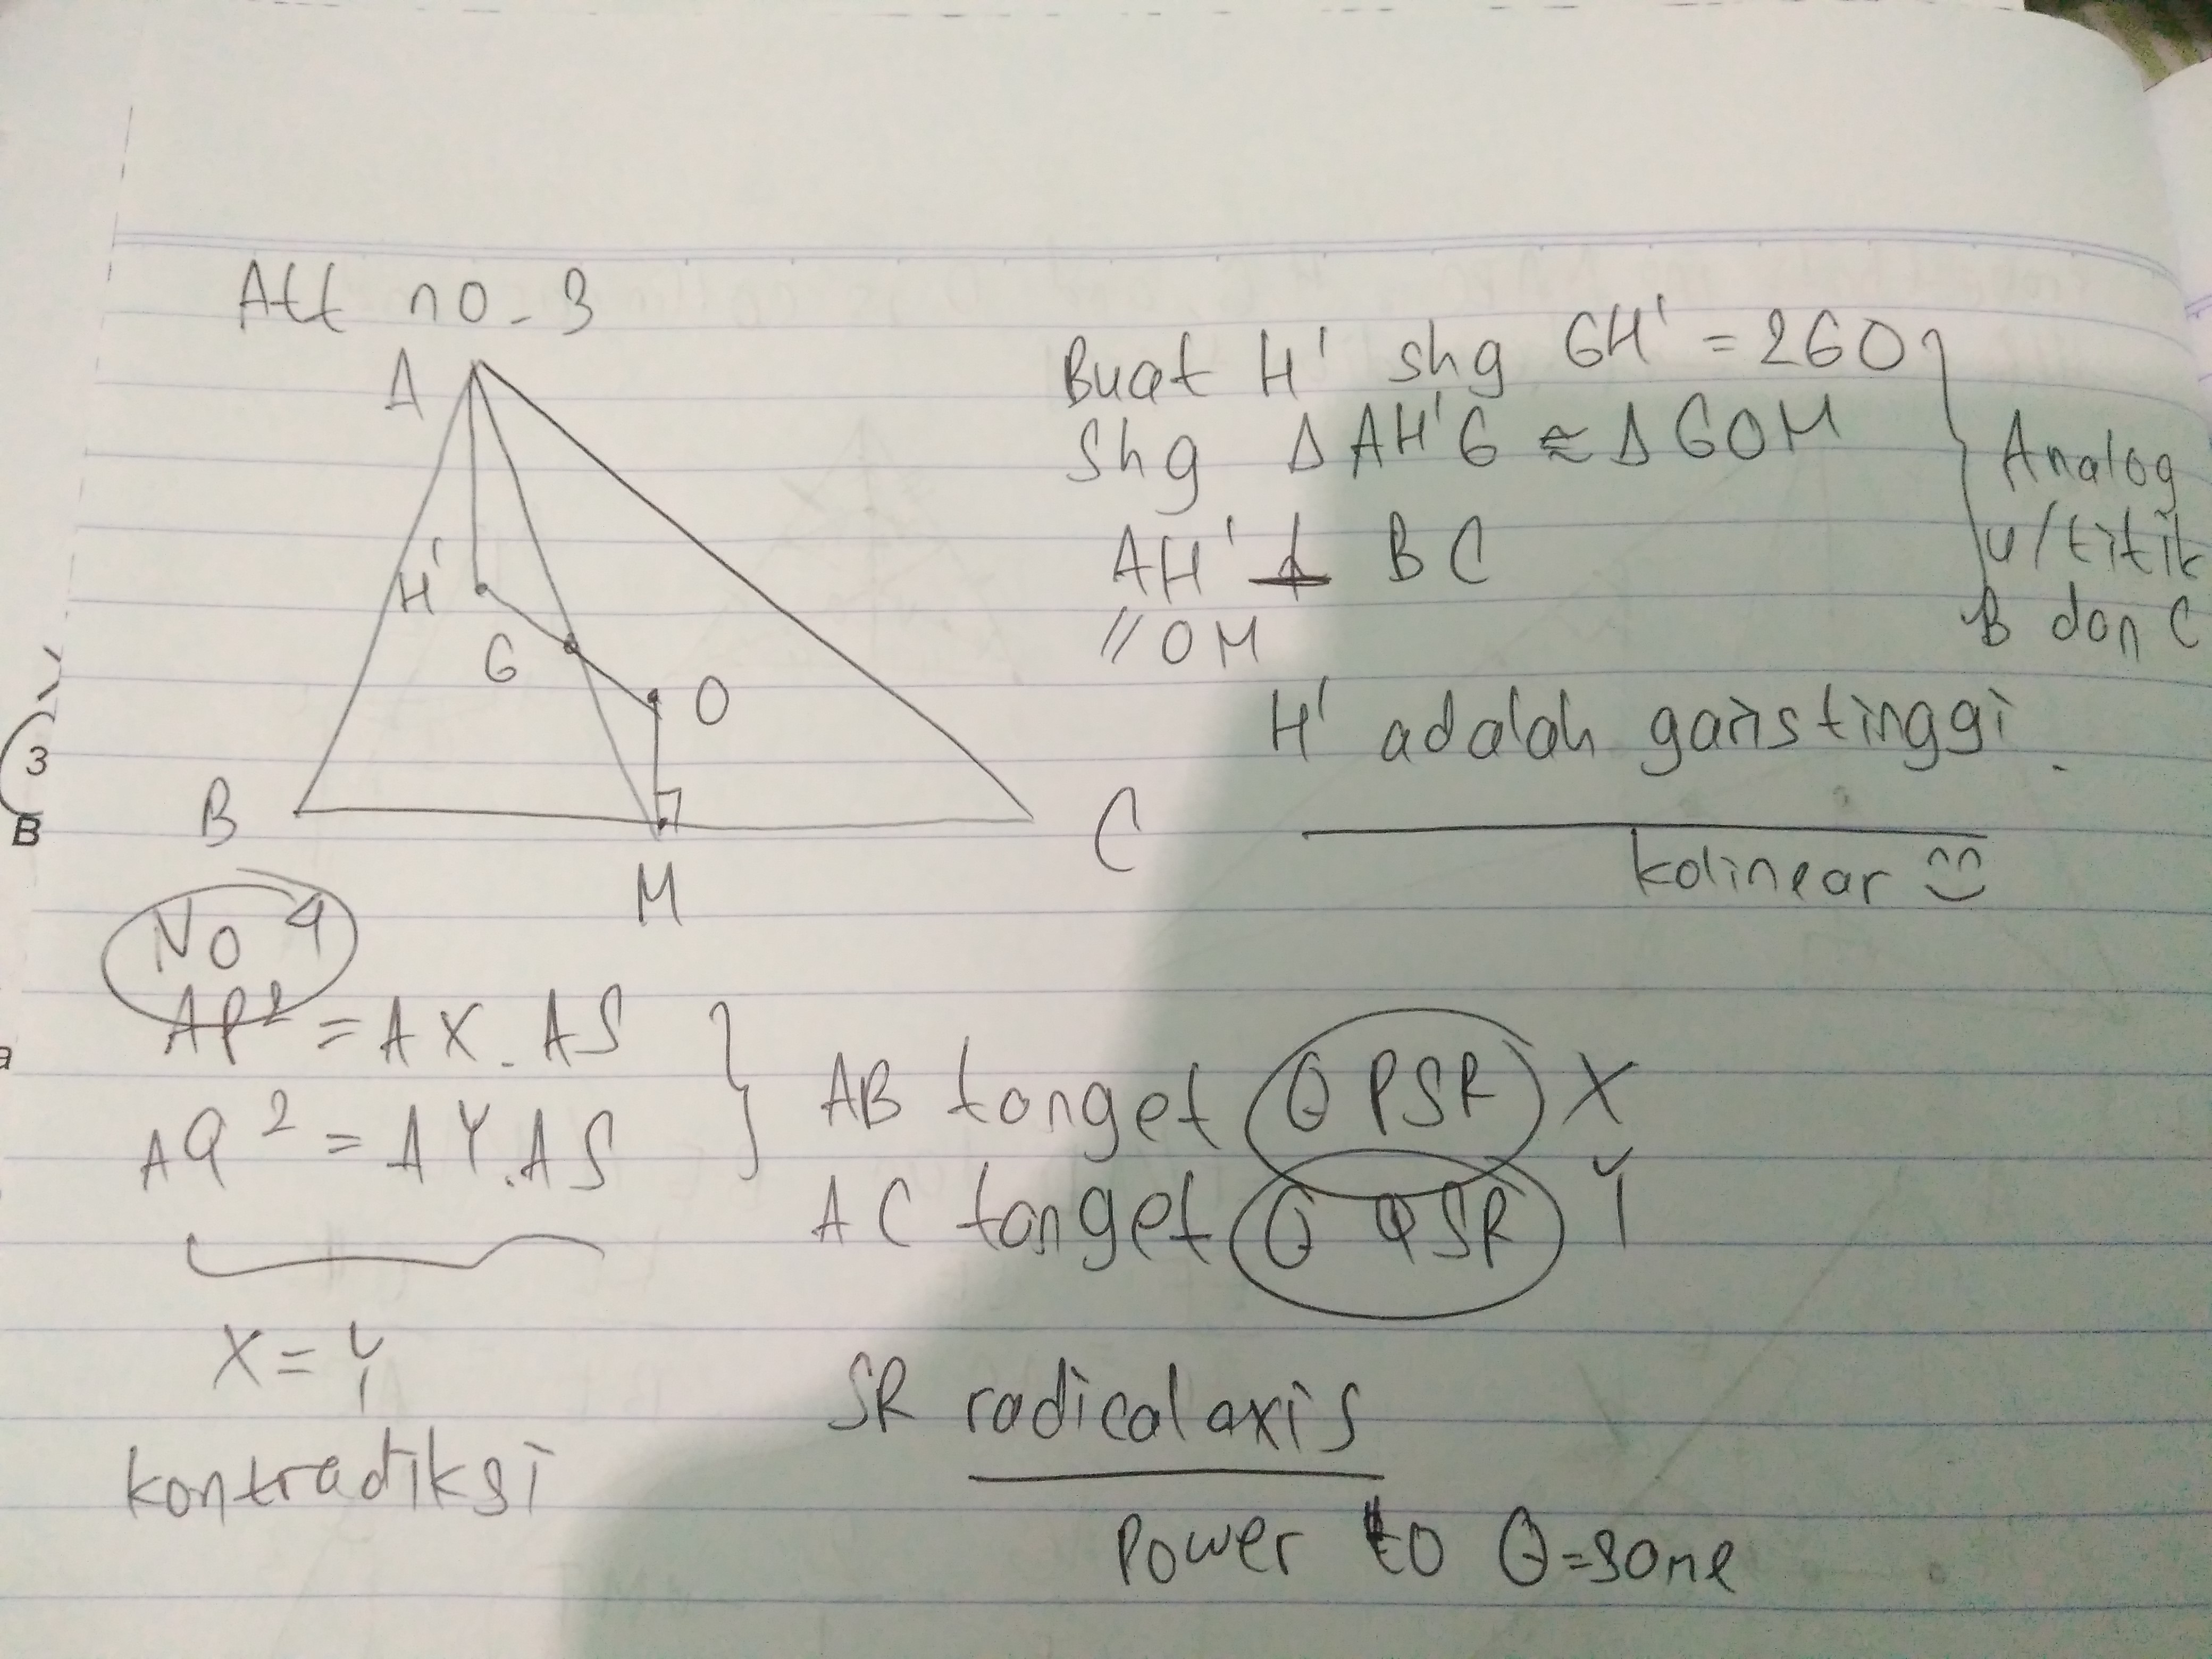 Alt no-3
A
H'
G
O
B
M
C
Buat H' shg GH' = 2GO
Shg Δ AH'G ≈ Δ GOM
AH' ⊥ BC
// OM
Analog
u/titik
B dan C
H' adalah garistinggi.
kolinear
3
B
No 4
AP² = AX.AS
AQ² = AY.AS
X = Y
kontradiksi
AB tanget ⊙ PSR X
AC tanget ⊙ QSR Y
SR radical axis
Power to ⊙=same